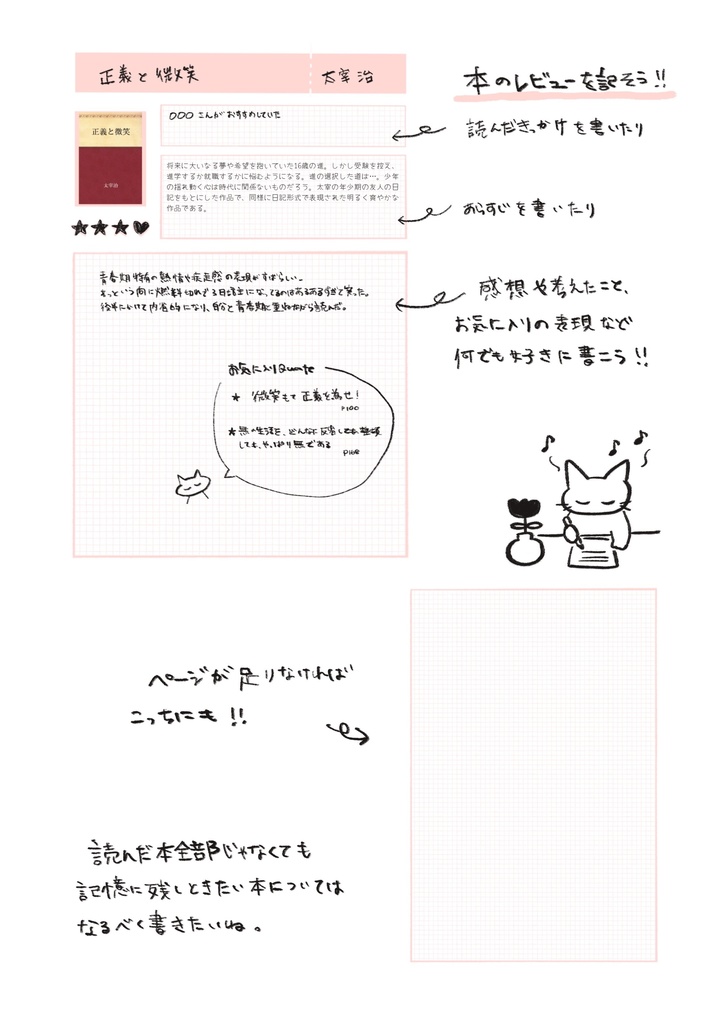 正義と微笑
太宰 治
本のレビューを記そう!!
〇〇〇 こんがおすすめしていた
読んだきっかけを書いたり
正義と微笑
太宰治
将来に大いなる夢や希望を抱いていた16歳の進。しかし受験を控え、
進学するか就職するかに悩むようになる。進の選択した道は…。少年
の揺れ動く心は時代に関係ないものだろう。太宰の年少期の友人の日
記をもとにした作品で、同様に日記形式で表現された明るく爽やかな
作品である。
あらすじを書いたり
★★★♥
青春期特有の熱情や疾走感の表現がすばらしい。
あっという間に燃料切れで3日坊主になってるのはあるあるすぎて笑った。
後半にかけて内省的になり、自分と青春期に重ねながら読んだ。
感想や考えたこと、
お気に入りの表現など
何でも好きに書こう!!
お気に入りQuote
★ 微笑もて正義を為せ!
P100
しても、やっぱり無である
ページが足りなければ
こっちにも!!
読んだ本全部じゃなくても
記憶に残しときたい本については
なるべく書きたいね。